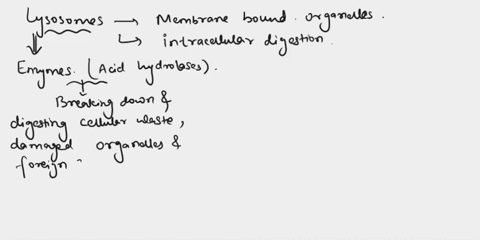 Lysosomes → Membrane bound organelles.
↳ intracellular digestion.
Enzymes. (Acid hydrolases).
Breaking down &
digesting cellular waste,
damaged organelles &
foreign